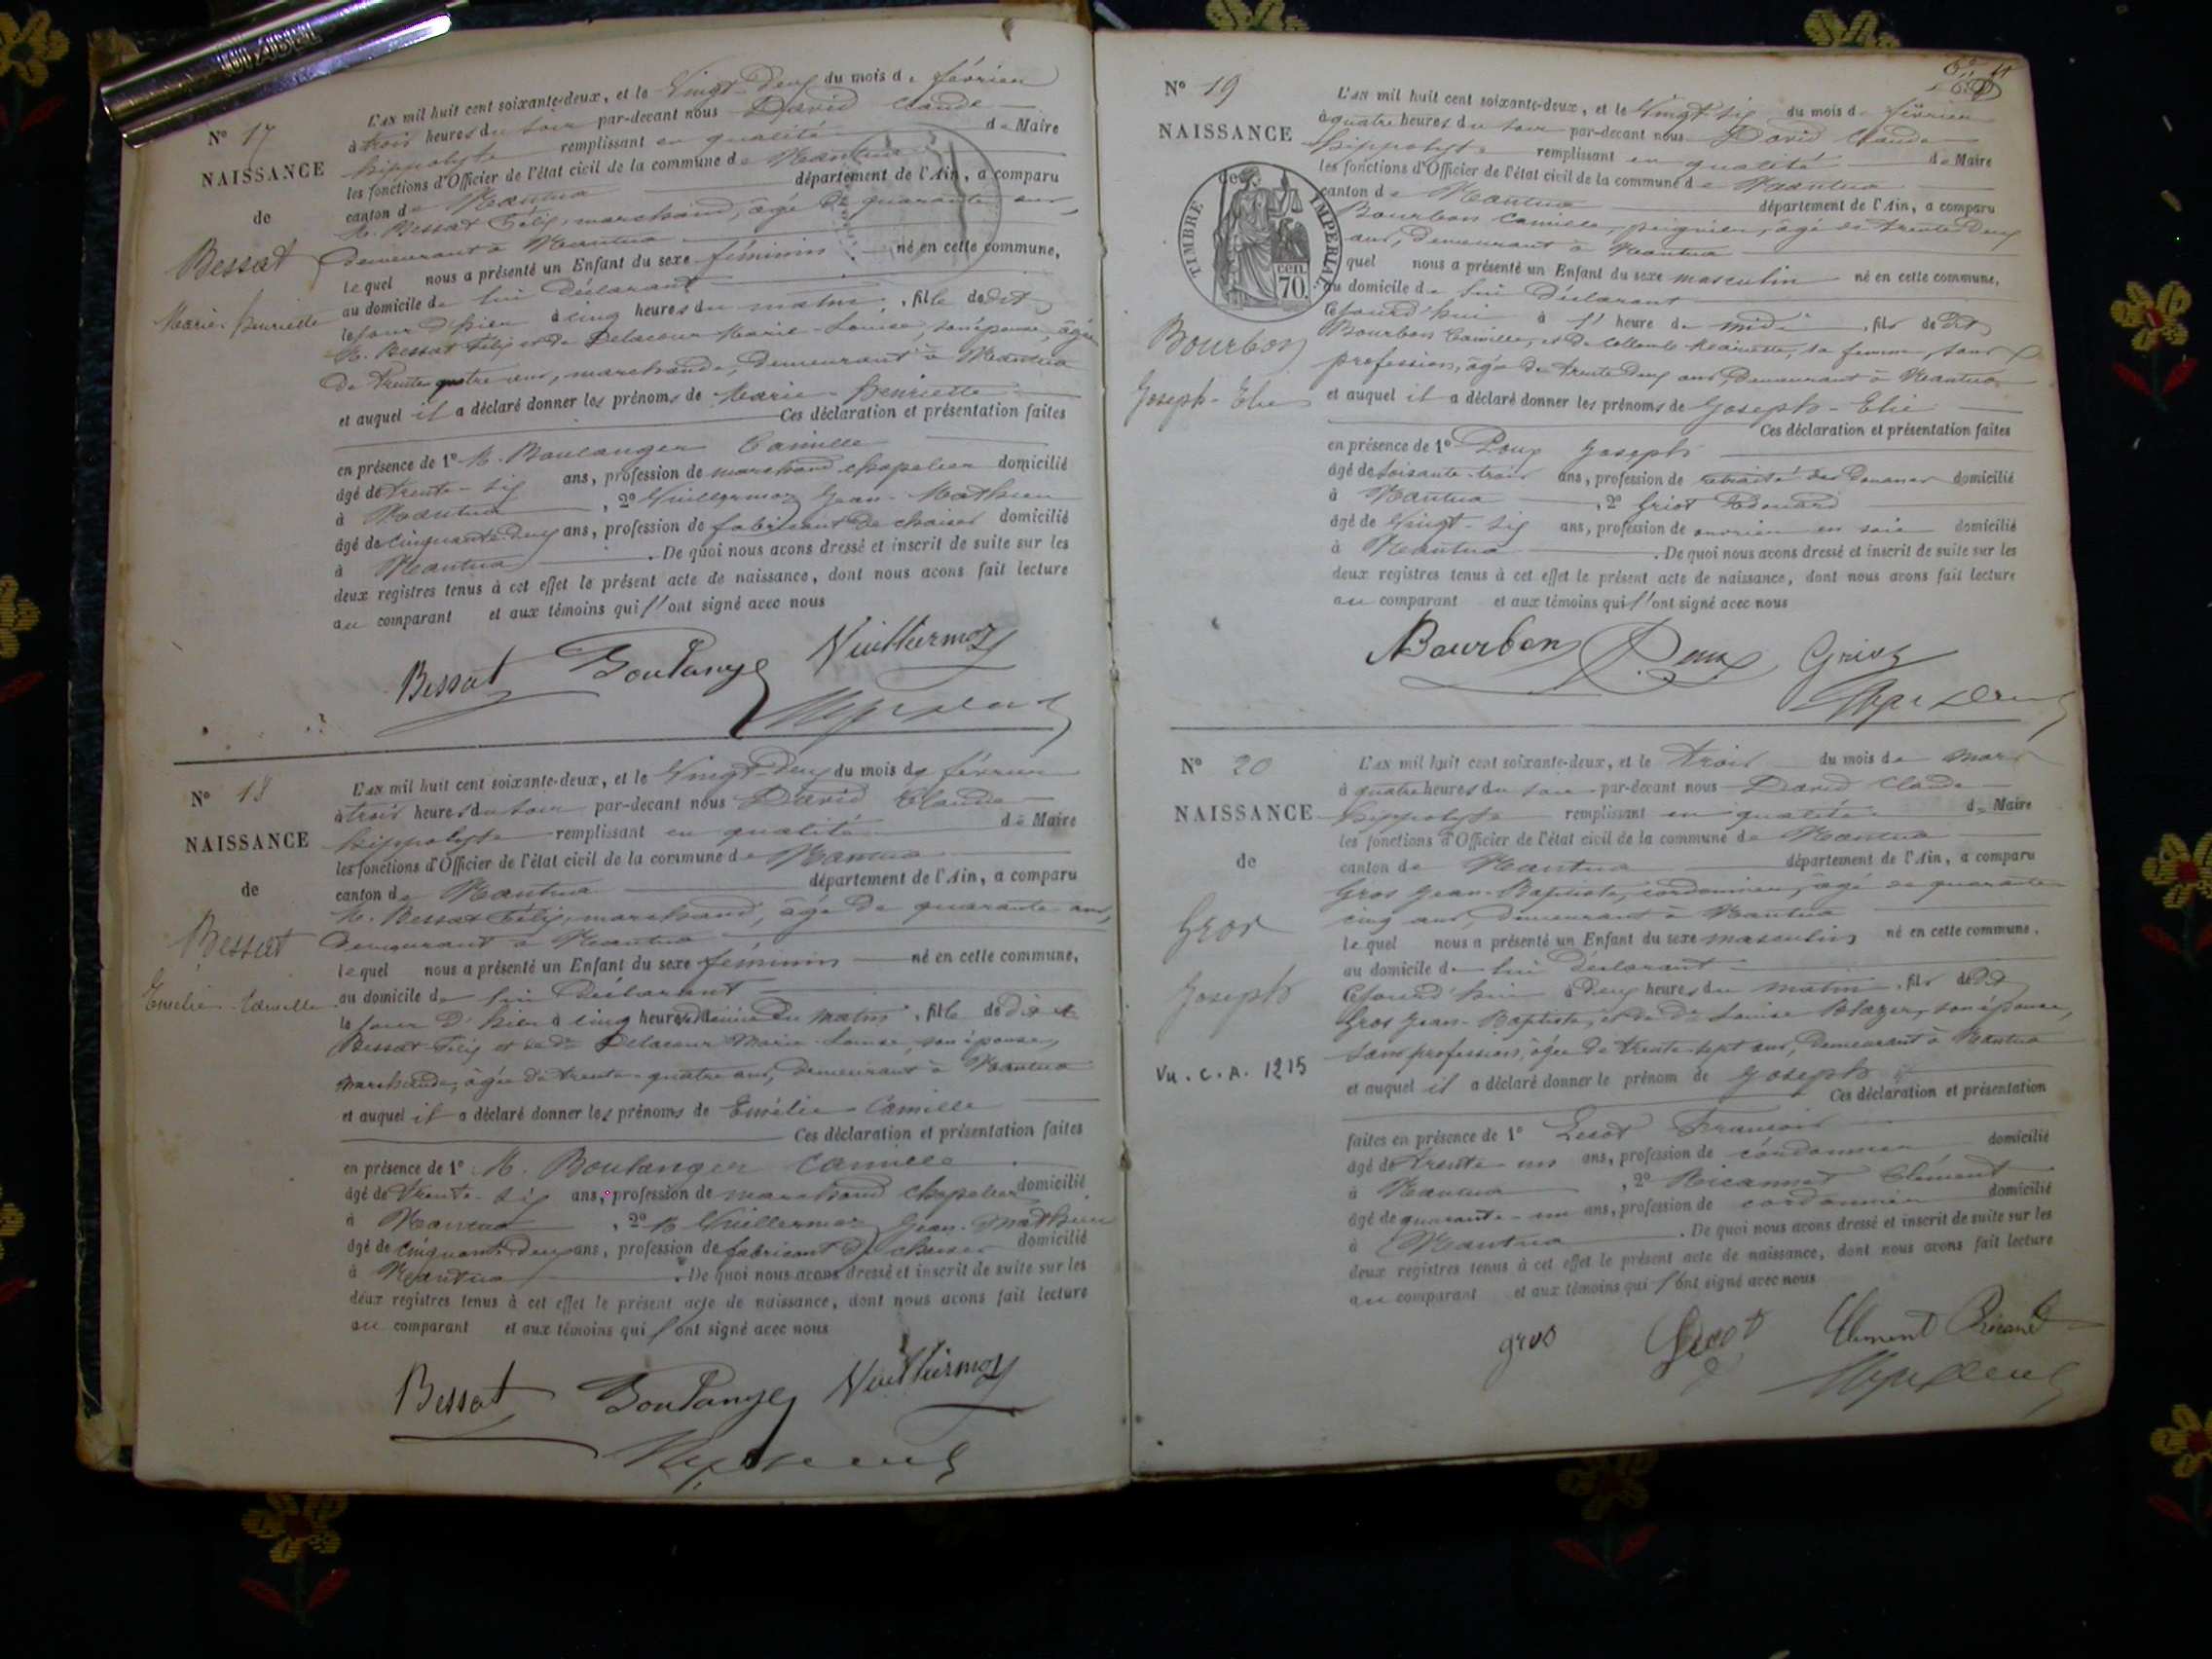 N° 17
NAISSANCE
de
Bessat
Marie-Henriette
L'AN mil huit cent soixante-deux, et le Vingt-Deux du mois de février
à trois heures du soir par-devant nous David Claude
hippolyte remplissant en qualité de Maire
les fonctions d'Officier de l'état civil de la commune de Nantua
canton de Nantua département de l'Ain, a comparu
M. Bessat Félix, marchand, âgé de quarante ans,
demeurant à Nantua
lequel nous a présenté un Enfant du sexe féminin né en cette commune,
au domicile de lui Déclarant
le jour d'hier à cinq heures du matin, fille de dit
M. Bessat Félix et de Delacour Marie-Louise, son épouse, âgée
de trente quatre ans, marchande, demeurant à Nantua
et auquel il a déclaré donner les prénoms de Marie-Henriette
Ces déclaration et présentation faites
en présence de 1° M. Boulanger Camille
âgé de trente-six ans, profession de marchand chapelier domicilié
à Nantua, 2° Vuillermoz Jean-Mathieu
âgé de cinquante-deux ans, profession de fabricant de chaises domicilié
à Nantua. De quoi nous avons dressé et inscrit de suite sur les
deux registres tenus à cet effet le présent acte de naissance, dont nous avons fait lecture
au comparant et aux témoins qui l'ont signé avec nous
Bessat Boulanger Vuillermoz
N° 18
NAISSANCE
de
Bessat
Emélie-Camille
L'AN mil huit cent soixante-deux, et le Vingt-Deux du mois de février
à trois heures du soir par-devant nous David Claude
hippolyte remplissant en qualité de Maire
les fonctions d'Officier de l'état civil de la commune de Nantua
canton de Nantua département de l'Ain, a comparu
M. Bessat Félix, marchand, âgé de quarante ans,
demeurant à Nantua
lequel nous a présenté un Enfant du sexe féminin né en cette commune,
au domicile de lui Déclarant
le jour d'hier à cinq heures demie du matin, fille de dit
Bessat Félix et de Delacour Marie-Louise, son épouse,
marchande, âgée de trente-quatre ans, demeurant à Nantua
et auquel il a déclaré donner les prénoms de Emélie-Camille
Ces déclaration et présentation faites
en présence de 1° M. Boulanger Camille
âgé de trente-six ans, profession de marchand chapelier domicilié
à Nantua, 2° M. Vuillermoz Jean-Mathieu
âgé de cinquante-deux ans, profession de fabricant de chaises domicilié
à Nantua. De quoi nous avons dressé et inscrit de suite sur les
deux registres tenus à cet effet le présent acte de naissance, dont nous avons fait lecture
au comparant et aux témoins qui l'ont signé avec nous
Bessat Boulanger Vuillermoz
N° 19
NAISSANCE
de
TIMBRE IMPERIAL
70 cen.
Bourbon
Joseph-Elie
L'AN mil huit cent soixante-deux, et le Vingt six du mois de février
à quatre heures du soir par-devant nous David Claude
hippolyte remplissant en qualité de Maire
les fonctions d'Officier de l'état civil de la commune de Nantua
canton de Nantua département de l'Ain, a comparu
Bourbon Camille, peignier, âgé de trente deux
ans, demeurant à Nantua
quel nous a présenté un Enfant du sexe masculin né en cette commune,
au domicile de lui Déclarant
Cejourd'hui à l' heure de midi, fils de dit
Bourbon Camille, et de Mariette, sa femme, sans
profession, âgée de trente deux ans, demeurant à Nantua
et auquel il a déclaré donner les prénoms de Joseph-Elie
Ces déclaration et présentation faites
en présence de 1° Poux Joseph
âgé de soixante-trois ans, profession de retraité des Douanes domicilié
à Nantua, 2° Griot Edouard
âgé de Vingt-six ans, profession de ouvrier en soie domicilié
à Nantua. De quoi nous avons dressé et inscrit de suite sur les
deux registres tenus à cet effet le présent acte de naissance, dont nous avons fait lecture
au comparant et aux témoins qui l'ont signé avec nous
Bourbon Poux Griot
N° 20
NAISSANCE
de
Gros
Joseph
Vu. C. A. 1215
L'AN mil huit cent soixante-deux, et le trois du mois de mars
à quatre heures du soir par-devant nous David Claude
hippolyte remplissant en qualité de Maire
les fonctions d'Officier de l'état civil de la commune de Nantua
canton de Nantua département de l'Ain, a comparu
Gros Jean-Baptiste, cordonnier, âgé de quarante
cinq ans, demeurant à Nantua
lequel nous a présenté un Enfant du sexe masculin né en cette commune,
au domicile de lui déclarant
Cejourd'hui à deux heures du matin, fils de dit
Gros Jean-Baptiste, et de De Louise Blazer, son épouse,
sans profession, âgée de trente-sept ans, demeurant à Nantua
et auquel il a déclaré donner le prénom de Joseph
Ces déclaration et présentation
faites en présence de 1° Lecot François
âgé de trente-un ans, profession de cordonnier domicilié
à Nantua, 2° Ricannet Clément
âgé de quarante-un ans, profession de cordonnier domicilié
à Nantua. De quoi nous avons dressé et inscrit de suite sur les
deux registres tenus à cet effet le présent acte de naissance, dont nous avons fait lecture
au comparant et aux témoins qui l'ont signé avec nous
gros Lecot Clément